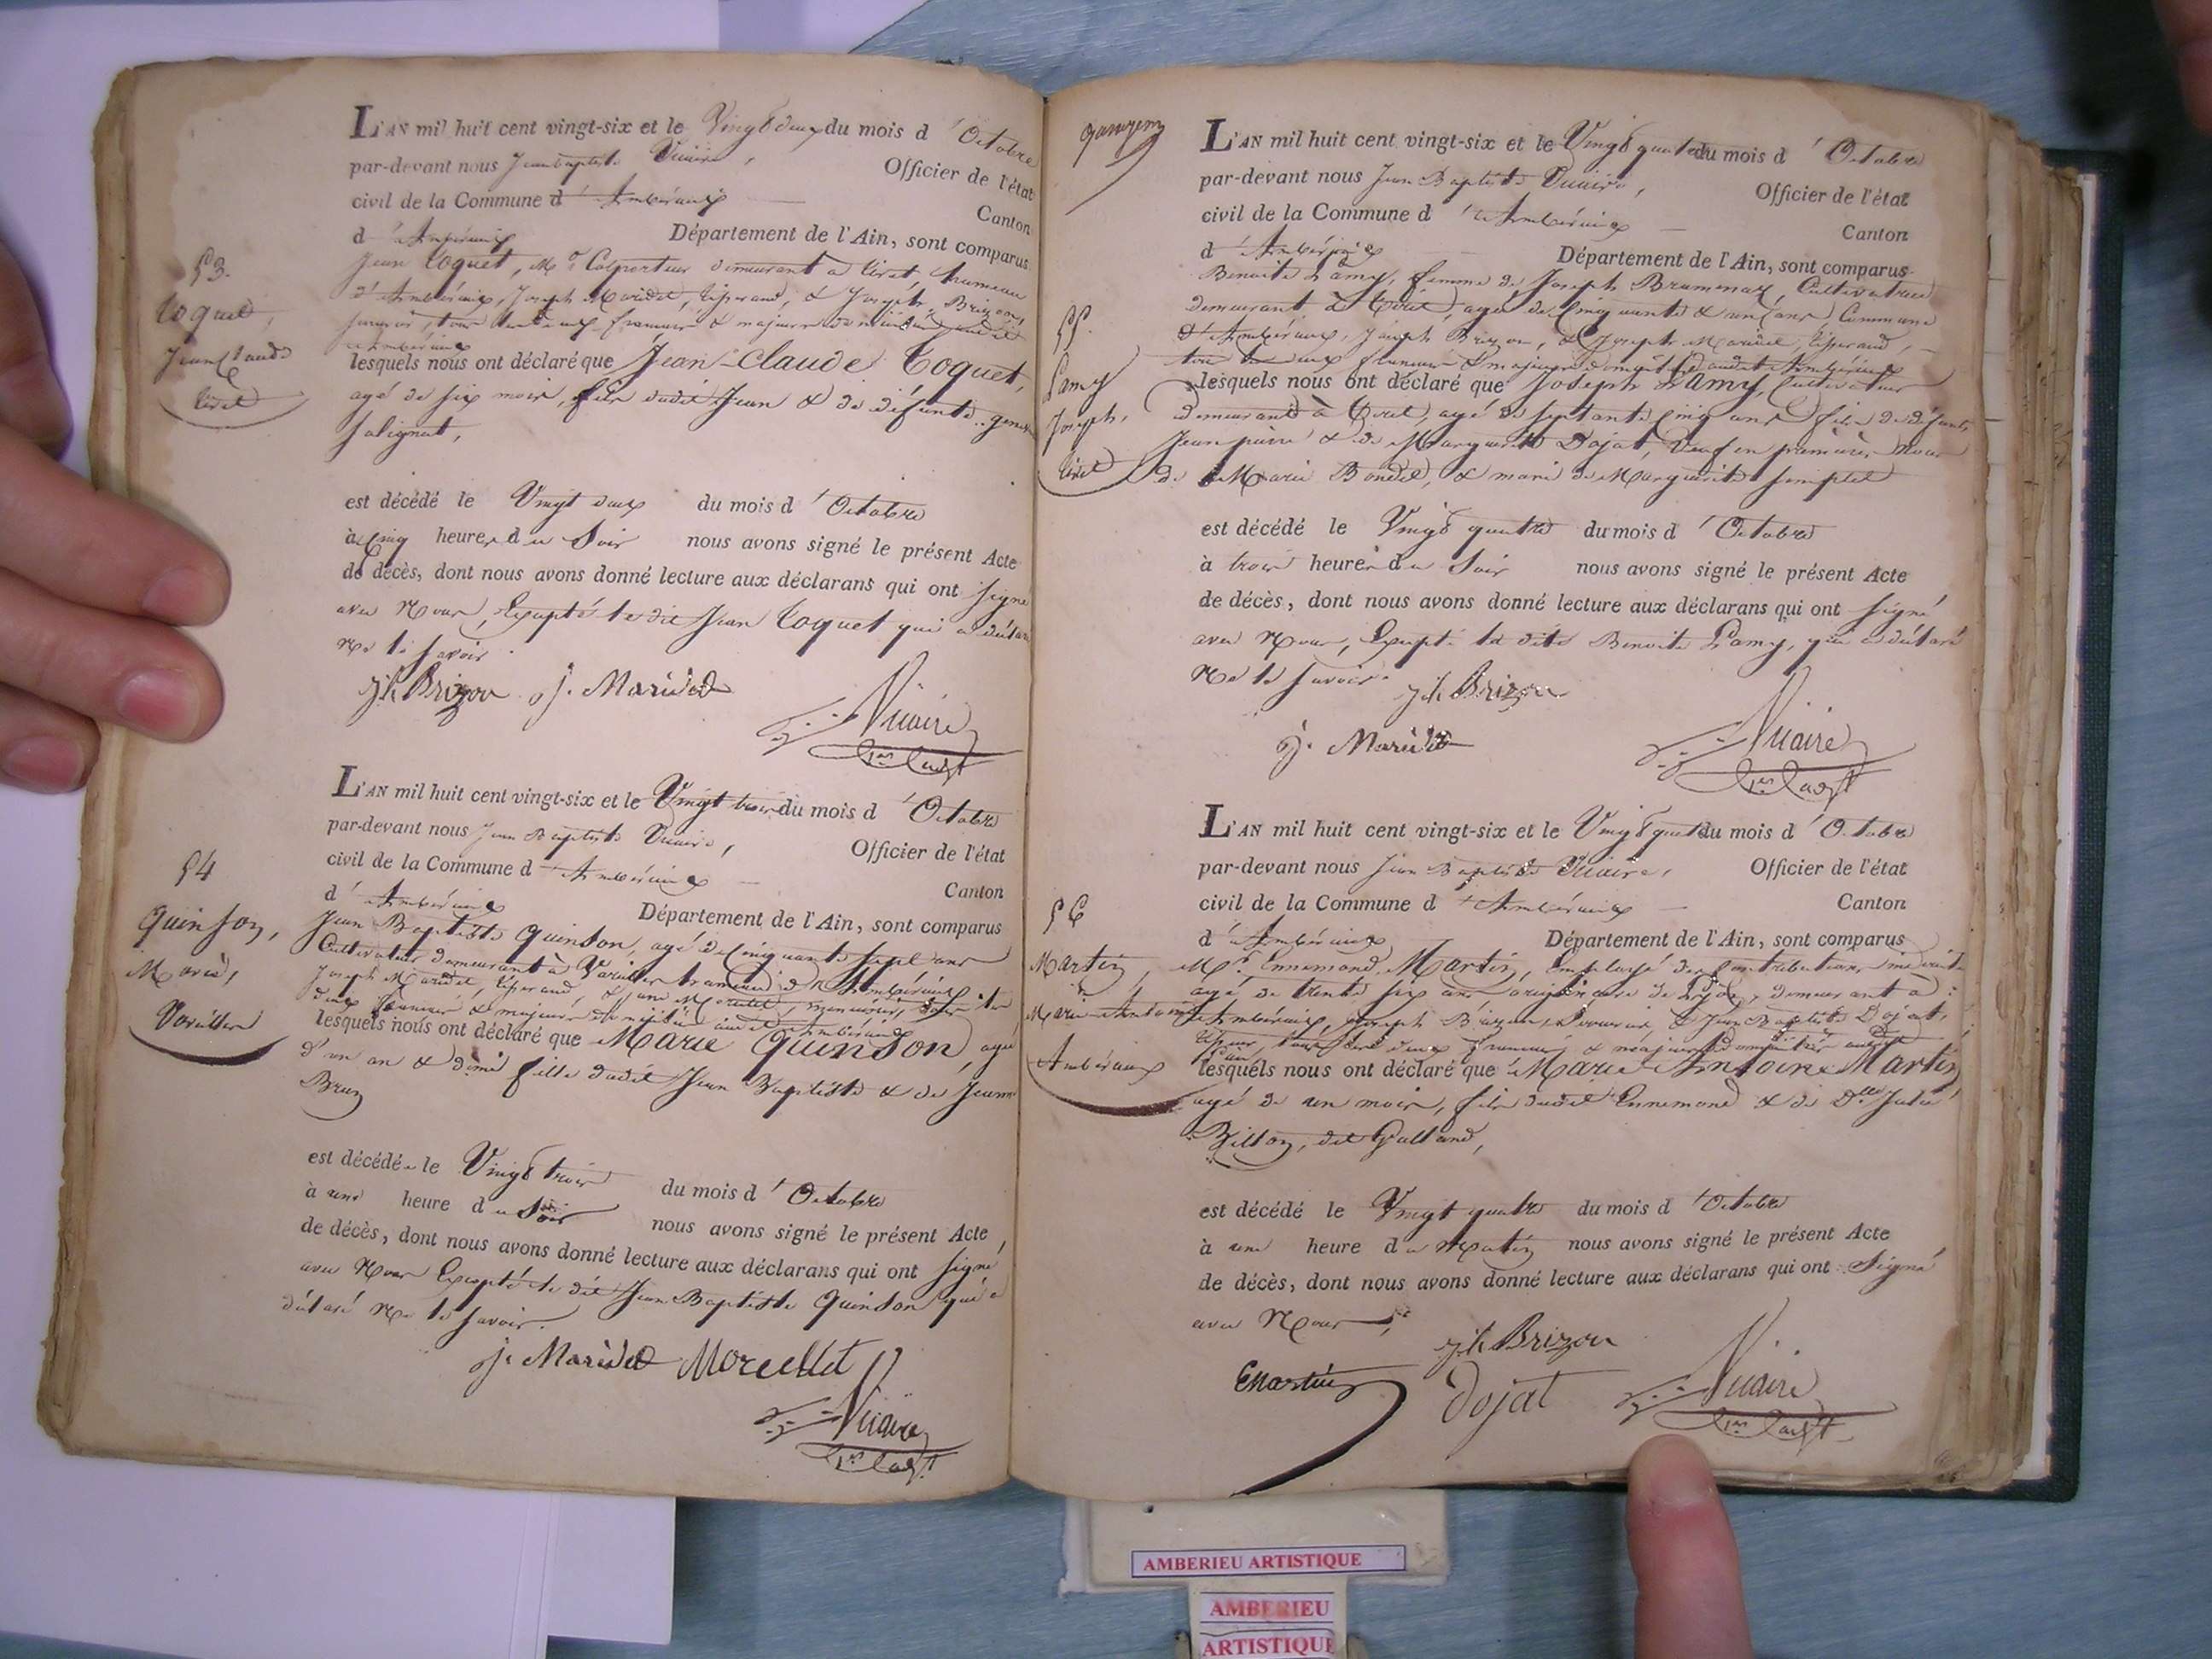 L'AN mil huit cent vingt-six et le Vingt deux du mois d'Octobre
par-devant nous Jean baptiste Vicaire, Officier de l'état
civil de la Commune d'Ambérieux Canton
d'Ambérieux Département de l'Ain, sont comparus
Jean Coquet, Md Colporteur demeurant à tiret, hameau
d'Ambérieux, Joseph Maridet, tisserand, & Joseph Brizon,
tous deux français & majeurs domiciliés audit
Ambérieux
53.
Coquet,
Jean Claude
tiret
lesquels nous ont déclaré que Jean-Claude Coquet,
agé de six mois, fils dudit Jean & de défunte
Salignat,
est décédé le Vingt deux du mois d'Octobre
à cinq heures du Soir nous avons signé le présent Acte
de décès, dont nous avons donné lecture aux déclarans qui ont signé
avec Nous, Excepté le dit Jean Coquet qui a déclaré
Ne le savoir
Jh Brizon J. Maridet
Vicaire
L'AN mil huit cent vingt-six et le Vingt trois du mois d'Octobre
par-devant nous Jean Baptiste Vicaire, Officier de l'état
civil de la Commune d'Ambérieux Canton
d'Ambérieux Département de l'Ain, sont comparus
Jean Baptiste Quinson, agé de Cinquante sept ans
Cultivateur demeurant à Vareilles hameau d'Ambérieux
Joseph Maridet, tisserand, & Morellet, menuisier, tous
deux français & majeurs domiciliés audit Ambérieux
54
Quinson,
Marie,
Vareilles
lesquels nous ont déclaré que Marie Quinson, agée
d'un an & demi fille dudit Jean Baptiste & de Jeanne
Brun
est décédée le Vingt trois du mois d'Octobre
à une heure du Soir nous avons signé le présent Acte,
de décès, dont nous avons donné lecture aux déclarans qui ont signé
avec Nous Excepté le dit Jean Baptiste Quinson qui a
déclaré Ne le savoir.
J. Maridet Morellet
Vicaire
L'AN mil huit cent vingt-six et le Vingt quatre du mois d'Octobre
par-devant nous Jean Baptiste Vicaire, Officier de l'état
civil de la Commune d'Ambérieux Canton
d'Ambérieux Département de l'Ain, sont comparus
Benoite Lamy, femme de Joseph Brumenay, Cultivatrice
demeurant à tiret, agée de Cinquante & un ans, Commune
d'Ambérieux, Joseph Brizon, & Joseph Maridet, tisserand,
tous deux français & majeurs domiciliés audit Ambérieux
55.
Lamy
Joseph,
tiret
lesquels nous ont déclaré que Joseph Lamy, Cultivateur
demeurant à tiret, agé de septante cinq ans fils de défunts
Jean pierre & de Marguerite Dojat, Veuf en premières Noces
de Marie Bondet, & mari de Marguerite Simplet
est décédé le Vingt quatre du mois d'Octobre
à trois heures du Soir nous avons signé le présent Acte
de décès, dont nous avons donné lecture aux déclarans qui ont signé
avec Nous, Excepté la dite Benoite Lamy, qui a déclaré
Ne le savoir.
Jh Brizon
J. Maridet
Vicaire
L'AN mil huit cent vingt-six et le Vingt quatre du mois d'Octobre
par-devant nous Jean Baptiste Vicaire, Officier de l'état
civil de la Commune d'Ambérieux Canton
d'Ambérieux Département de l'Ain, sont comparus
Mr. Ennemond Martin, Employé des Contributions indirectes
agé de trente six ans originaire de demeurant à
Ambérieux, Joseph Brizon, & Jean Baptiste Dojat,
tous deux français & majeurs domiciliés audit
56
Martin,
Marie Antoine
Ambérieux
lesquels nous ont déclaré que Marie Antoine Martin
agé de un mois, fils dudit Ennemond & de Dlle Julie
Billon, dit Galland,
est décédé le Vingt quatre du mois d'Octobre
à une heure du Matin nous avons signé le présent Acte
de décès, dont nous avons donné lecture aux déclarans qui ont Signé
avec Nous
Jh Brizon
EMartin Dojat Vicaire
AMBERIEU ARTISTIQUE
AMBERIEU
ARTISTIQUE